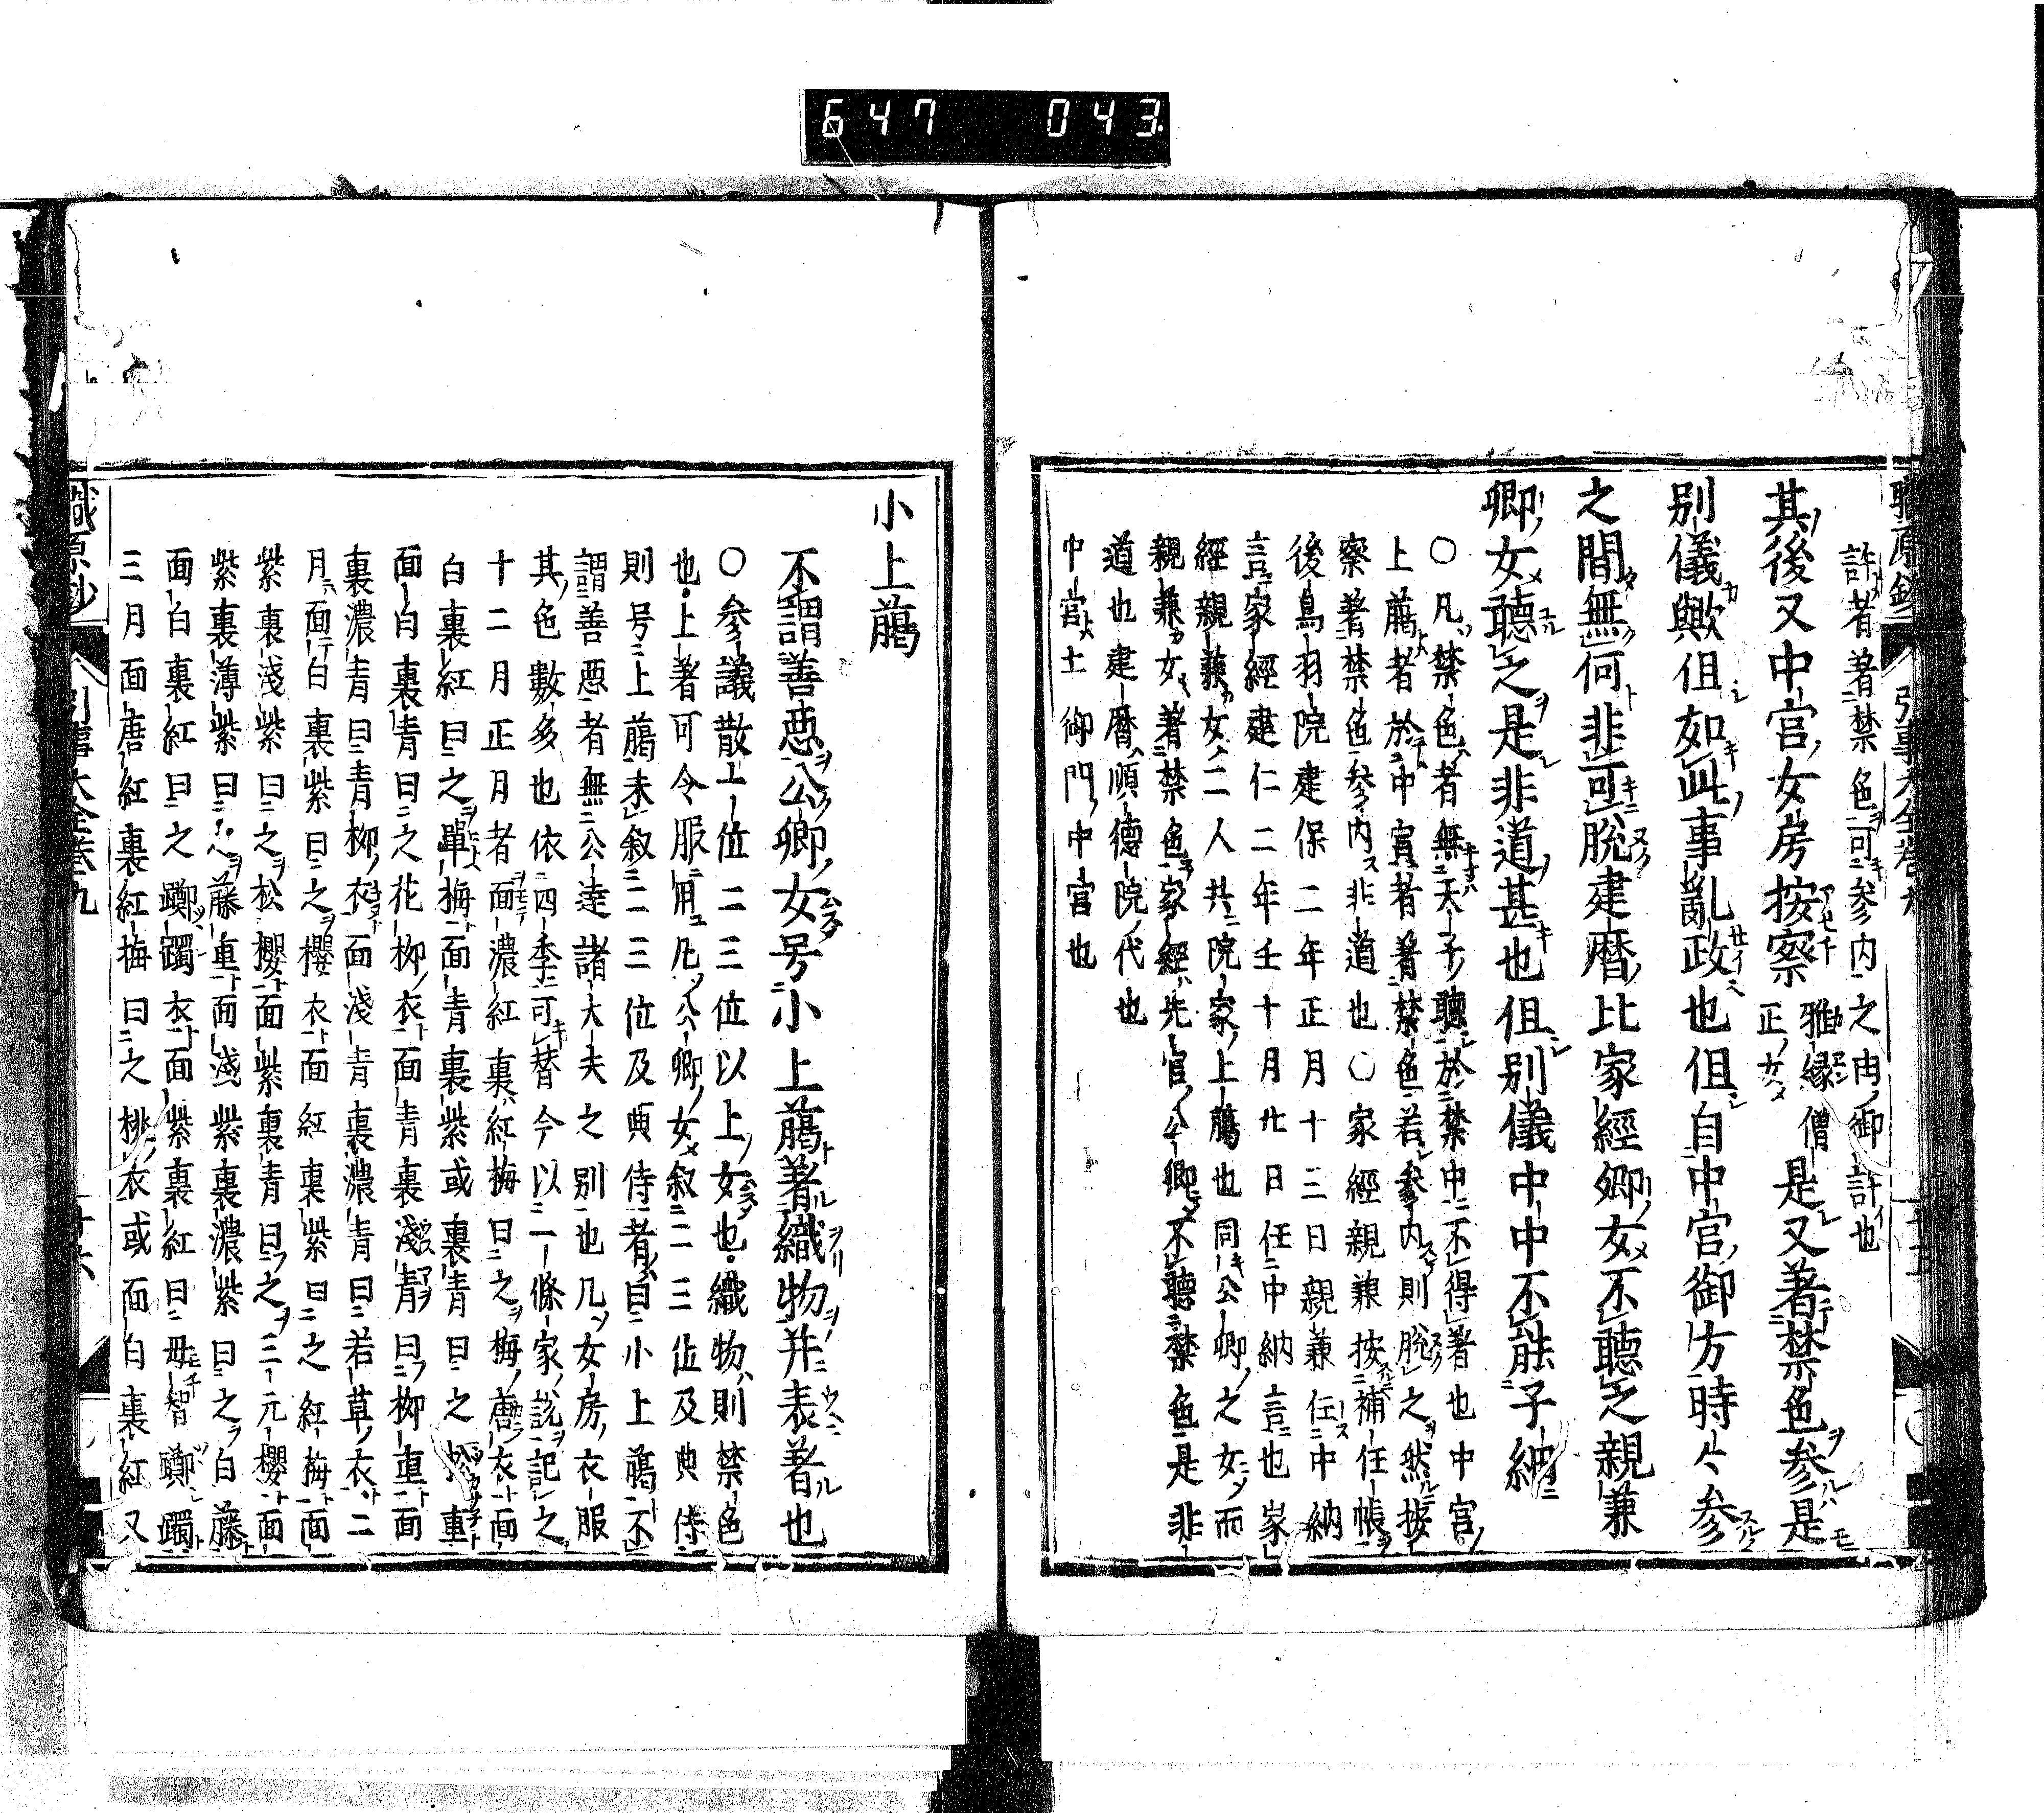 647 043
許者著禁色可参内之由御許也
其後又中宮女房按察雅縁僧正女是又著禁色参是
別儀歟但如此事亂政也但自中宮御方時々参
之間無何非可脱建暦比家經卿女不聽之親兼
卿女聽之是非道甚也但別儀中中不能子細
○凡禁色者無天子聽於禁中不得著也中宮
上﨟者於中宮者著禁色若参内則脱之然按
察著禁色参内非道也○家經親兼按補任帳
後鳥羽院建保二年正月十三日親兼任中納
言家經建仁二年壬十月廿日任中納言也家
經親兼女二人共院家上﨟也同公卿之女而
親兼女著禁色家經先官公卿不聽禁色是非
道也建暦順德院代也
中宮土御門中宮也
小上﨟
不謂善惡公卿女号小上﨟著織物并表著也
○参議散上位二三位以上女也織物則禁色
也上著可令服用凡公卿女叙二三位及典侍
則号上﨟未叙二三位及典侍者自小上﨟不
謂善惡者無公達諸大夫之別也凡女房衣服
其色數多也依四季可替今以一條家説記之
十二月正月者面濃紅裏紅梅曰之梅唐衣面
白裏紅曰之單梅面青裏紫或裏青曰之松重
面白裏青曰之花柳衣面青裏淺青曰柳重面
裏濃青曰青柳衣面淺青裏濃青曰若草衣二
月面白裏紫曰之櫻衣面紅裏紫曰之紅梅面
紫裏淺紫曰之松櫻面紫裏青曰之三元櫻面
紫裏薄紫曰之藤重面淺紫裏濃紫曰之白藤
面白裏紅曰之躑躅衣面紫裏紅曰毋智躑躅
三月面唐紅裏紅梅曰之桃衣或面白裏紅又
職原鈔 引事大全卷九